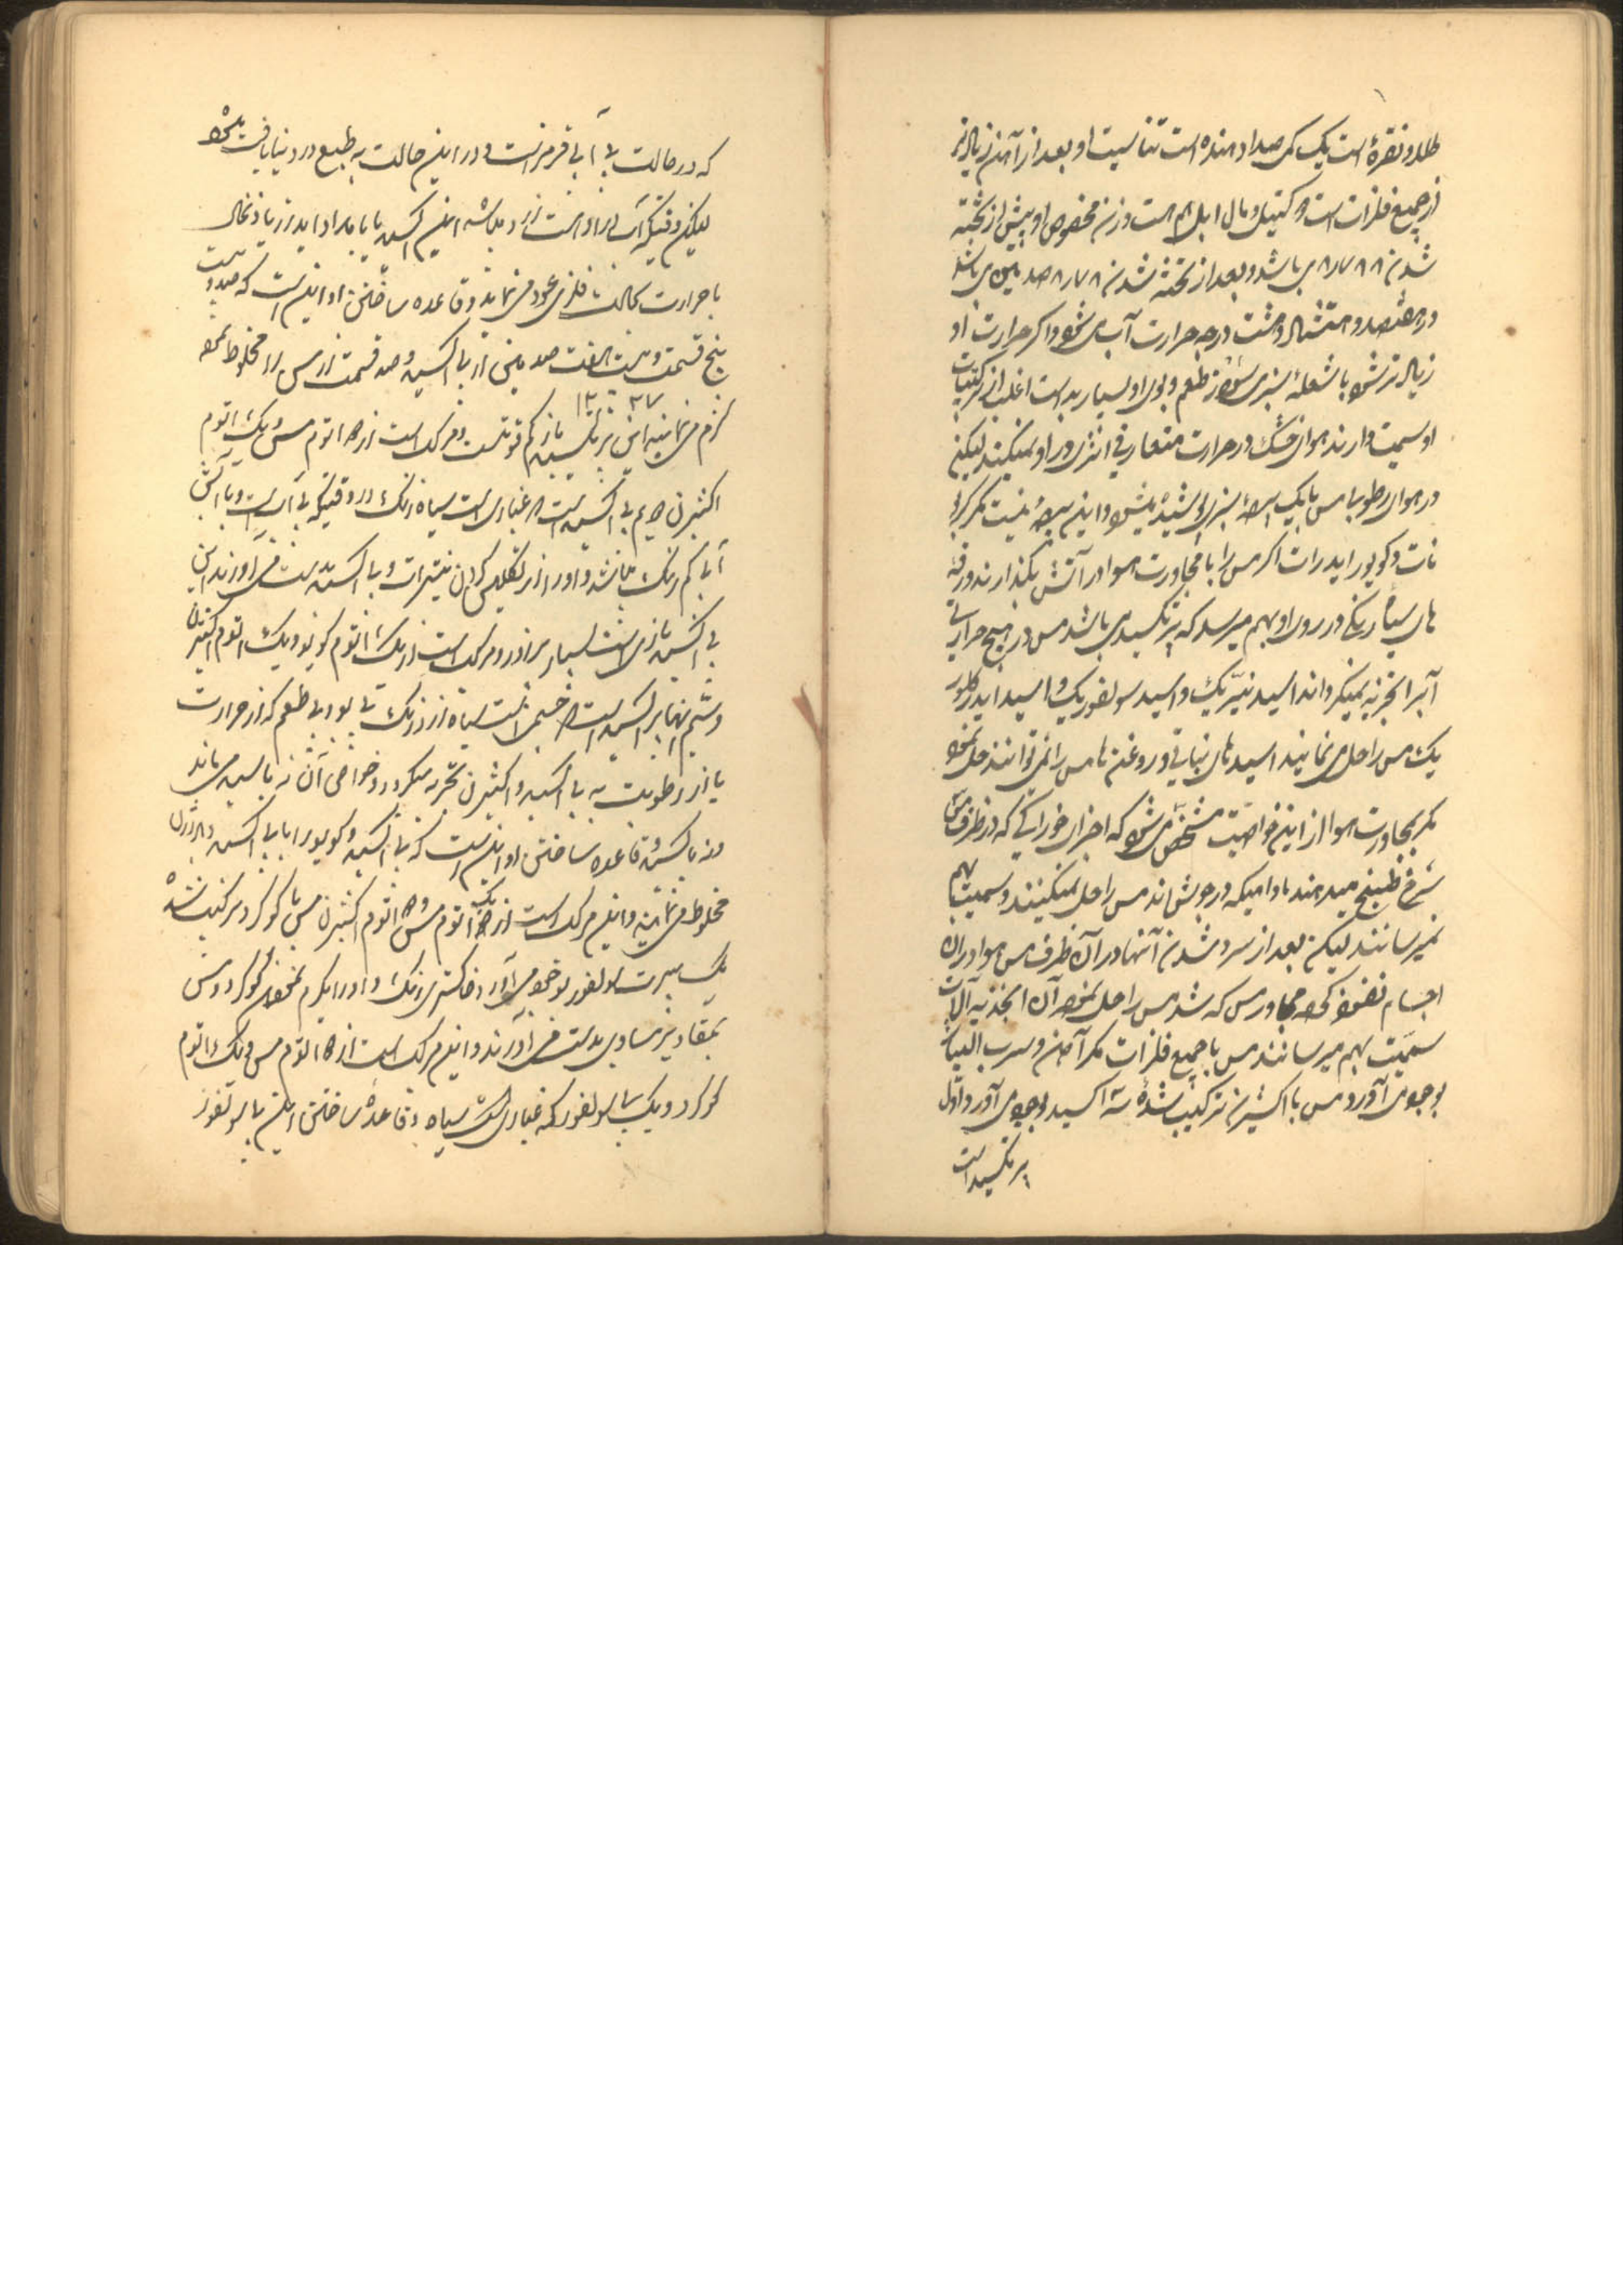 طلا و نقره است یک کمی صدا دهنده است تناسیت او بعد از آهن زیاد تر
از جمیع فلزات است و کتیل و مال ابل هم هست وزن مخصوص او پیش از تخته
شدن ۸٫۷۸۸ می باشد و بعد از تخته شدن ۸٫۸۷۸ صد یین می باشد
در هفتصد و هشتاد و هشت درجه حرارت آب می شود و اگر حرارت او
زیاد تر شود با شعله سبزی سوزد طعم و بوی او بسیار بد است اغلب از ترکیبات
او سمیت دارند هوای خشک در حرارت متعارفی اثری در او نمیکند لیکن
در هوای رطوبی مس با یک سبزی پوشیده میشود و این نیست مگر کربو
نات دکویور ایدرات اگر مس را با مجاورت هوا در آتش بگذارند ورقه
های سیاه رنگی در روی او بهم میرسد که پرتکسید می باشد مس در هیچ حرارتی
آب را تجزیه نمیکرداند اسید نیتریک و اسید سولفوریک و اسید ایدرکلور
یک مس را حل می نمایند اسید های نباتی و روغن ها مس را نمی توانند حل نمود
مگر بمجاورت هوا از این خواصیت مشخص می شود که اجزای خوراکی که در ظرف مس
سرخ طبخ میدهند مادامیکه در جوش اند مس را حل نمیکنند و سمیت بهم
نمیرسانند لیکن بعد از سرد شدن آنها در آن ظرف مس هوا در آن
اجسام نفوذ کرده مجاور مس که شد مس را حل نموده آن اغذیه آلات
سمیت بهم میرسانند مس با جمیع فلزات مگر آهن و سرب الیاژ
بوجود می آورد و مس با اکسیژن ترکیب شده سه اکسید بوجود می آورد و اول
پرتکسید است
که در حالت بی آبی قرمز است و در این حالت به طبع در دنیا یافت میشود
لیکن وقتیکه آب همراه اوست زرد میباشد این اکسید با ایدرژن یا ذغال
با حرارت بحالت فلزی عود می نماید و قاعده ساختن او این است که صد و بیست
پنج قسمت و بیست هفت صد یین از بی اکسید و صد قسمت از مس را مخلوط نموده
۱۲۰ ۲۷
گرم می نمایند این پرتکسید باز کم قوتست و مرکب است از دو اتوم مس و یک اتوم
اکسیژن دویم بی اکسید است و غباری است سیاه رنگ در وقتیکه بی آب است و با آب
آبی کم رنگ میباشد و او را از تکلیس کردن نیترات و بی اکسید بدست می آورند این
بی اکسید بازی است بسیار پر زور و مرکب است از یک اتوم کویور و یک اتوم اکسیژن
و سیم اکسید است و جسمی است سیاه از زرنگ بی بو و بی طعم که از حرارت
یا از رطوبت به بی اکسید و اکسیژن تجزیه میگردد و خواص آن نه باسید می ماند
و نه باکسید و قاعده ساختن او این است که بی اکسید کویور را با بی اکسید دیدرژن
مخلوط می نمایند و این مرکب است از یک اتوم مس و دو اتوم اکسیژن مس با گوگرد مرکب شده
یک سولفور بوجود می آورد خاکستری رنگ و او را بگرم نمودن گوگرد و مس
بمقادیر مساوی بدست می آورند و این مرکب است از دو اتوم مس و یک اتوم
گوگرد و یک بی سولفور که غباری است سیاه و قاعده ساختن این بی سولفور